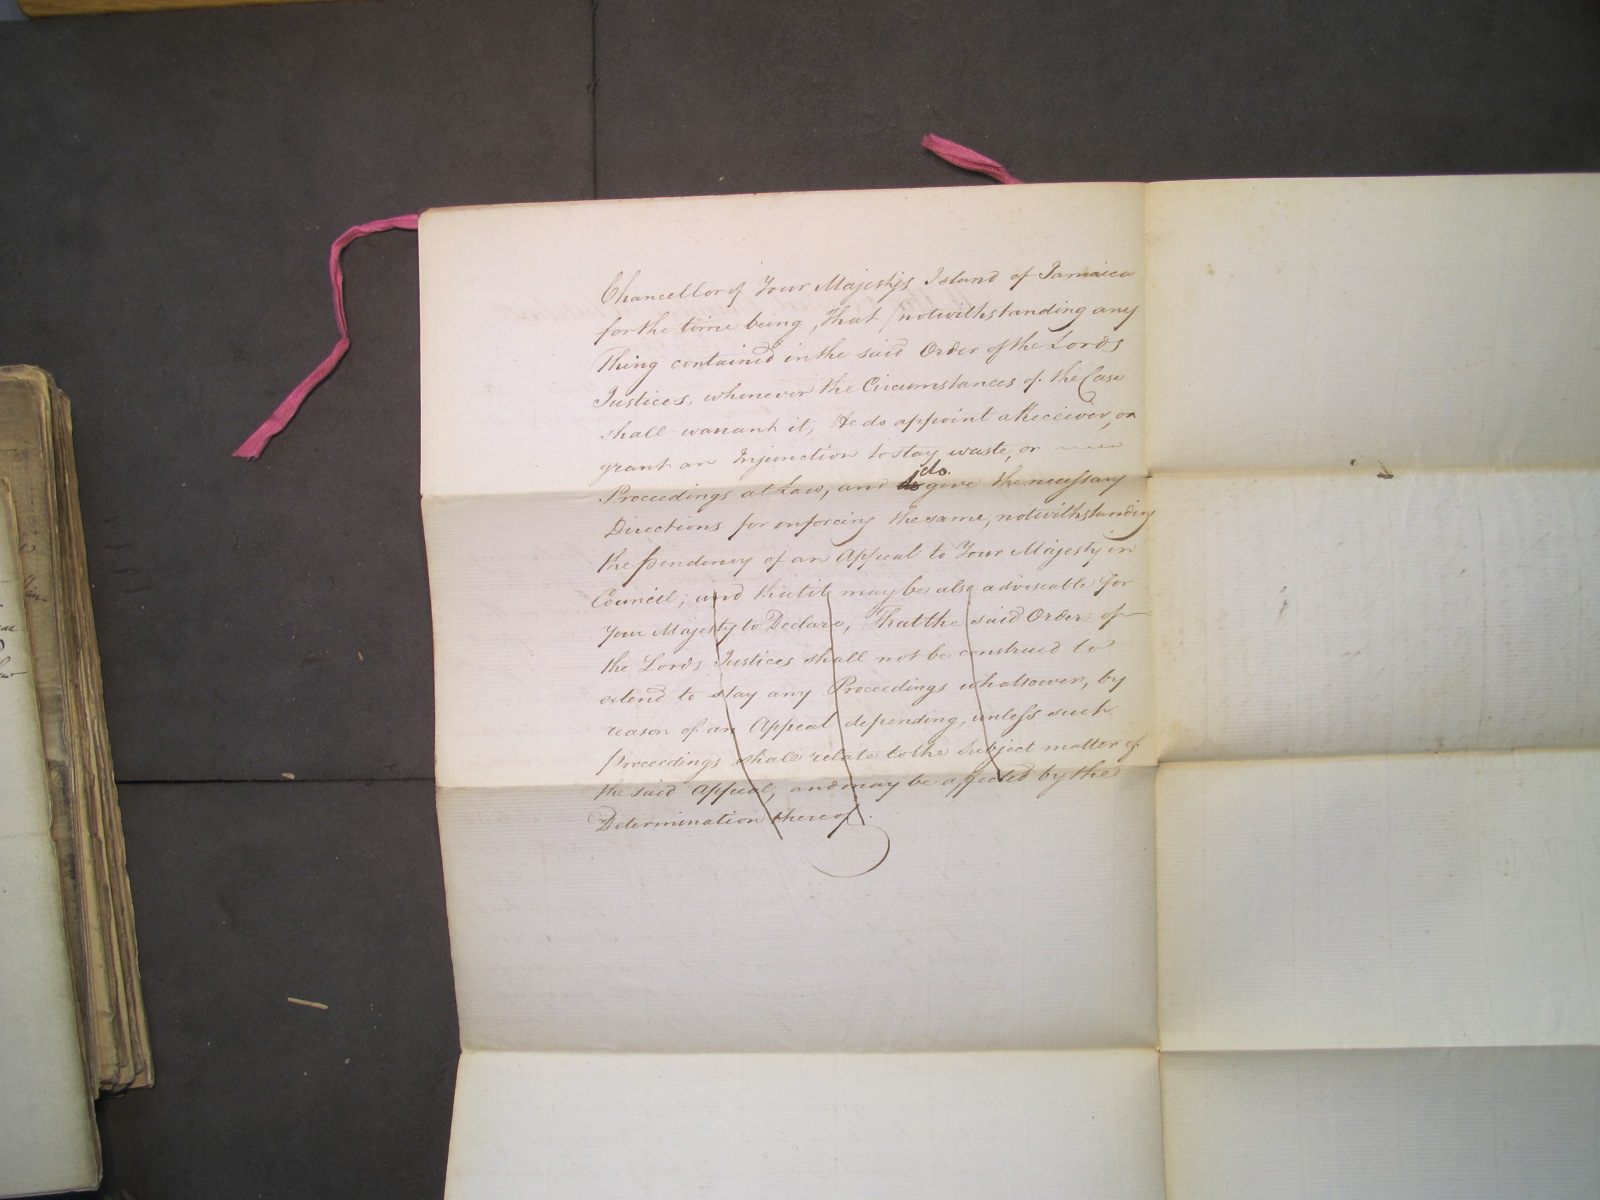 Chancellor of Your Majestys Island of Jamaica
for the time being, That (notwithstanding any
Thing contained in the said Order of the Lords
Justices, whenever the Circumstances of the Case
shall warrant it, He do appoint a Receiver, or
grant an Injunction to stay waste, or
Proceedings at Law, and do give the necessary
Directions for enforcing the same, notwithstanding
the pendency of an Appeal to Your Majesty in
Council; and that it may be also adviseable for
Your Majesty to Declare, That the said Order of
the Lords Justices shall not be construed to
extend to stay any Proceedings whatsoever, by
reason of an Appeal depending, unless such
Proceedings shall relate to the Subject matter of
the said Appeal, and may be affected by the
Determination thereof.